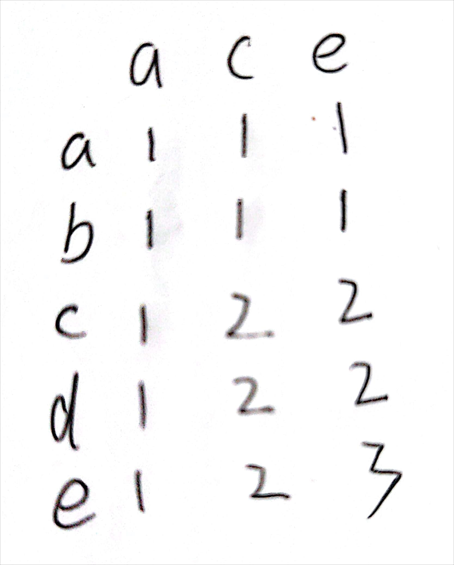 a c e
a 1 1 1
b 1 1 1
c 1 2 2
d 1 2 2
e 1 2 3